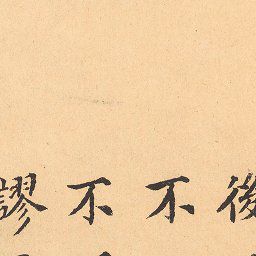 後
不
不
謬